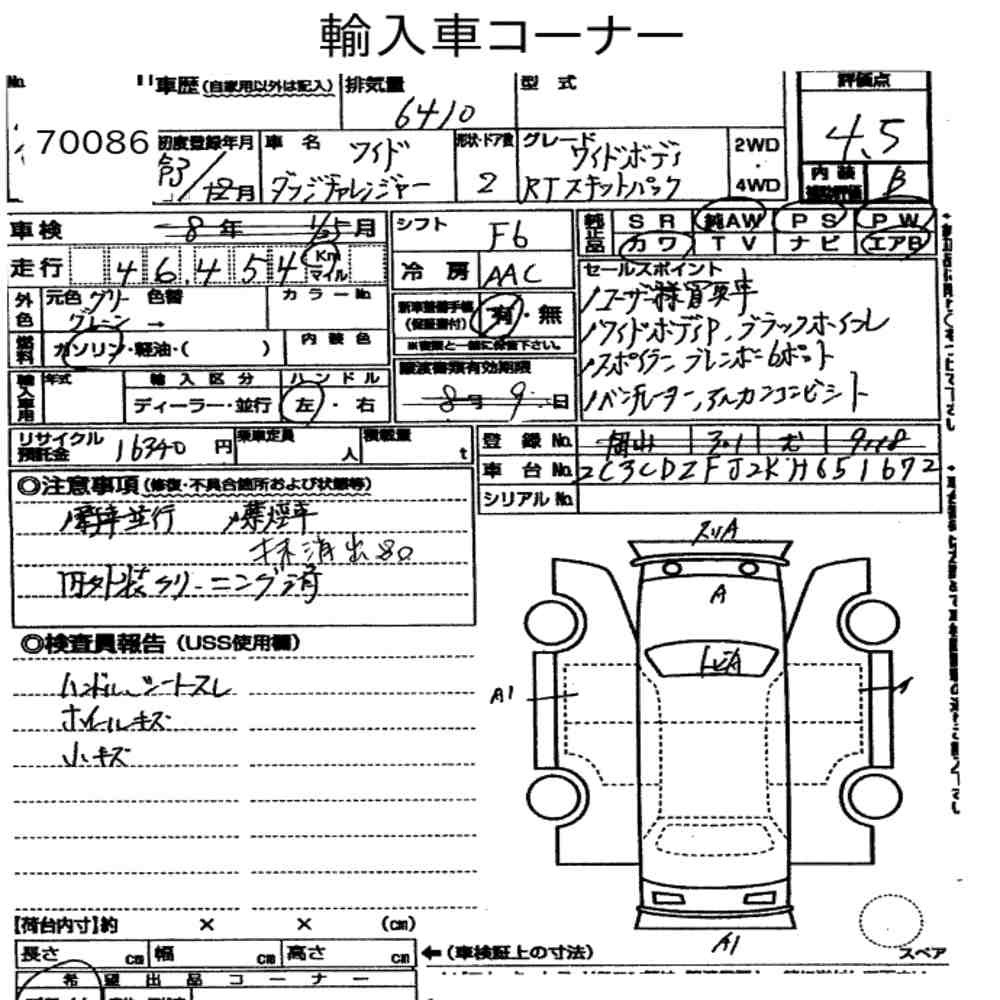 輸入車コーナー
No. 車歴 (自家用以外は記入) 排気量 型式 評価点
6410
70086 初度登録年月 車名 ワイド 形状・ドア数 グレード ワイドボディ 2WD ・ 4WD 4.5
令3/12月 ダッジチャレンジャー 2 RTスキャットパック 内装 補助評価 B
車検 8年 月 シフト F6 純正品 SR 純AW PS PW
カワ TV ナビ エアB
走行 46,454 Km マイル 冷房 AAC セールスポイント
外色 元色 グリー 色替 カラーNo. 新車整備手帳 (保証書付) 有・無 ユーザー様買取車
グレーン → ※書類と一緒に保管下さい。 ワイドボディP、ブラックホイール
燃料 ガソリン・軽油・( ) 内装色 譲渡書類有効期限 スポイラー ブレンボー6ポット
輸入車用 年式 輸入区分 ハンドル 8月 9日 ベンチレーター,アルカンコンビシート
ディーラー・並行 左・右
リサイクル預託金 16340円 乗車定員 人 積載量 t 登録No. 岡山 301 む 9118
車台No. 2C3CDZFJ2KH651672
シリアルNo.
◎注意事項 (修復・不具合箇所および状態等)
新車並行 禁煙車
抹消出80
内外装クリーニング済
スリA
A
トビA
A1
A1
◎検査員報告 (USS使用欄)
ハンドル、シートスレ
ホイールキズ
小キズ
【荷台内寸】約 × × (cm)
長さ cm 幅 cm 高さ cm ←(車検証上の寸法) スペア
希望出品コーナー